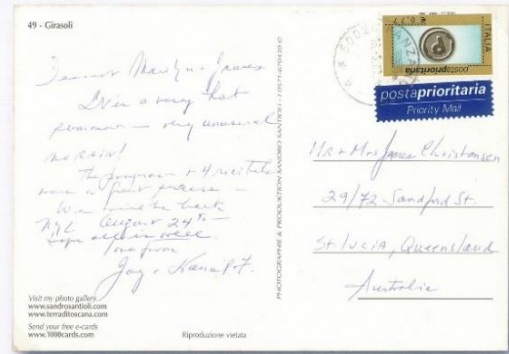 49 - Girasoli
Dearest Marilyn + James
a very hot
summer — very unusual
no RAIN!
The program + 4 recitals
were a great success —
We back
NYC August 24th —
hope all is well.
Love from
Jay + Kanail F.
Visit my photo gallery
www.sandrosantioli.com
www.terraditoscana.com
Send your free e-cards
www.1000cards.com
Riproduzione vietata
PHOTOGRAPHIE & PRODUKTION SANDRO SANTIOLI
ITALIA
postaprioritaria
postaprioritaria
Priority Mail
MR + Mrs James Christensen
29/72 Sandford St.
St. Lucia, Queensland
Australia